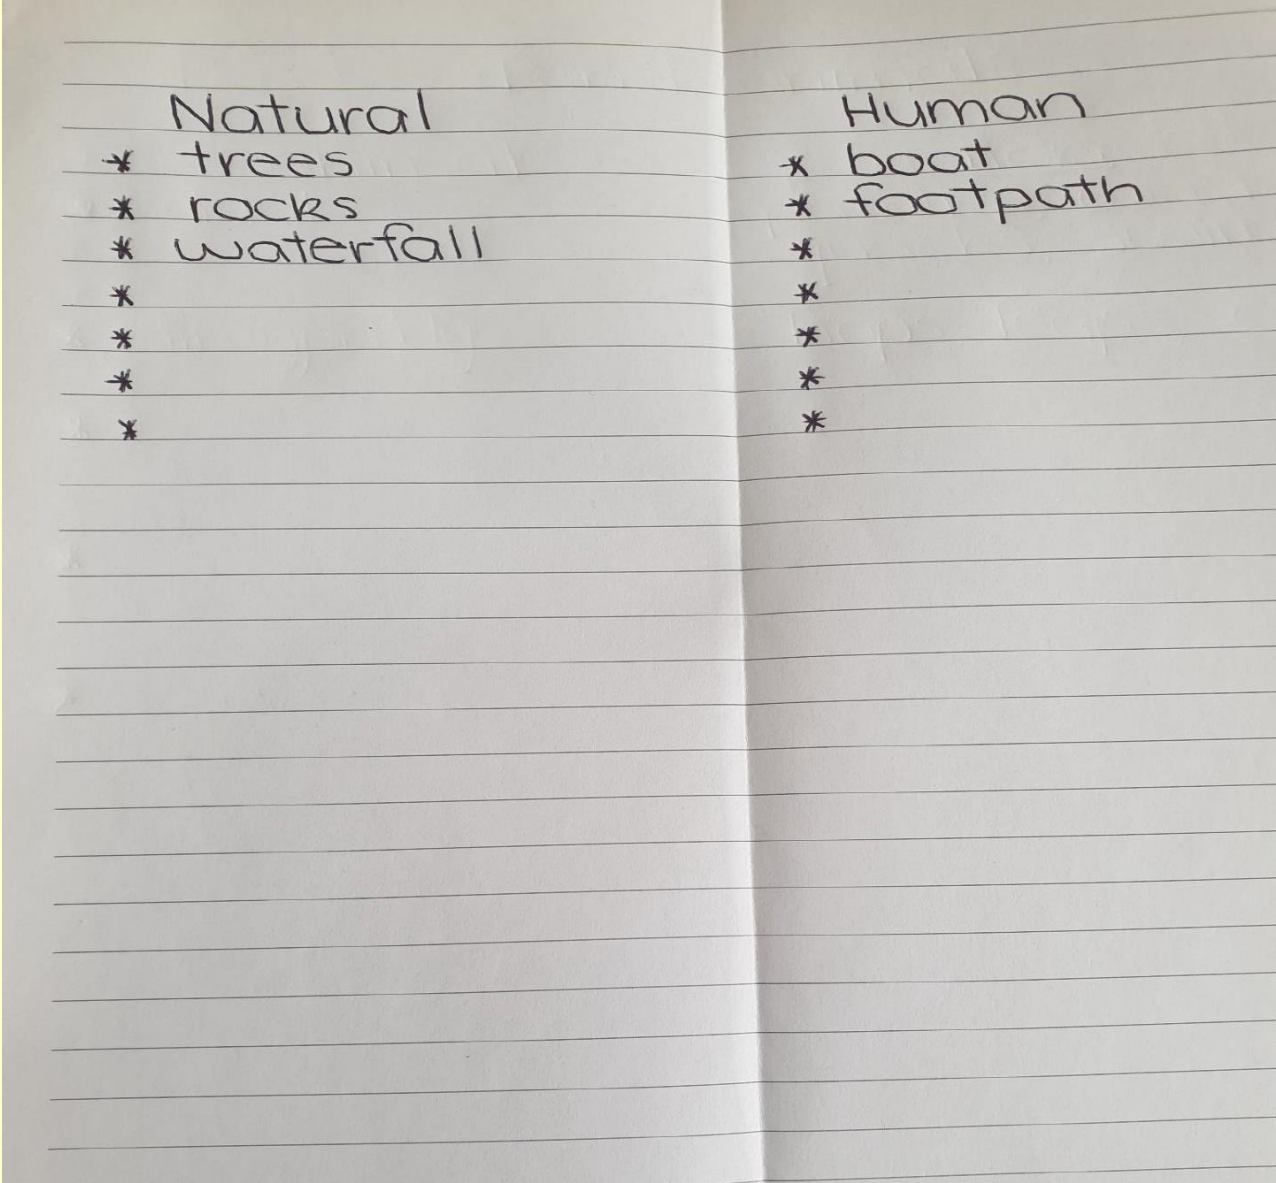 Natural
* trees
* rocks
* waterfall
*
*
*
*
Human
* boat
* footpath
*
*
*
*
*